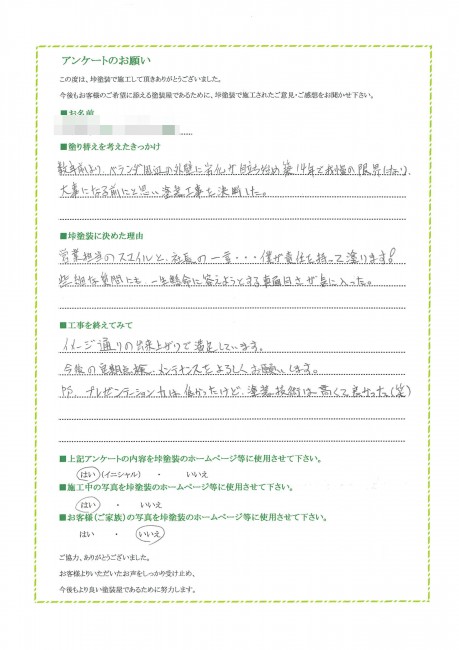 アンケートのお願い
この度は、垰塗装で施工して頂きありがとうございました。
今後もお客様のご希望に添える塗装屋であるために、垰塗装で施工されたご意見・ご感想をお聞かせ下さい。
■お名前
■塗り替えを考えたきっかけ
数年前より、ベランダ周辺の外壁に劣化が目立ち始め築14年で我慢の限界になり、
大事になる前にと思い塗装工事を決断した。
■垰塗装に決めた理由
営業担当のスマイルと、社長の一言・・・僕が責任を持って塗ります!
些細な質問にも、一生懸命に答えようとする真面目さが気に入った。
■工事を終えてみて
イメージ通りの出来上がりで満足しています。
今後の定期点検、メンテナンスをよろしくお願いします。
PS プレゼンテーション力は低かったけど、塗装技術は高くて良かった(笑)
■上記アンケートの内容を垰塗装のホームページ等に使用させて下さい。
はい (イニシャル) ・ いいえ
■施工中の写真を垰塗装のホームページ等に使用させて下さい。
はい ・ いいえ
■お客様(ご家族)の写真を垰塗装のホームページ等に使用させて下さい。
はい ・ いいえ
ご協力、ありがとうございました。
お客様よりいただいたお声をしっかり受け止め、
今後もより良い塗装屋であるために努力します。